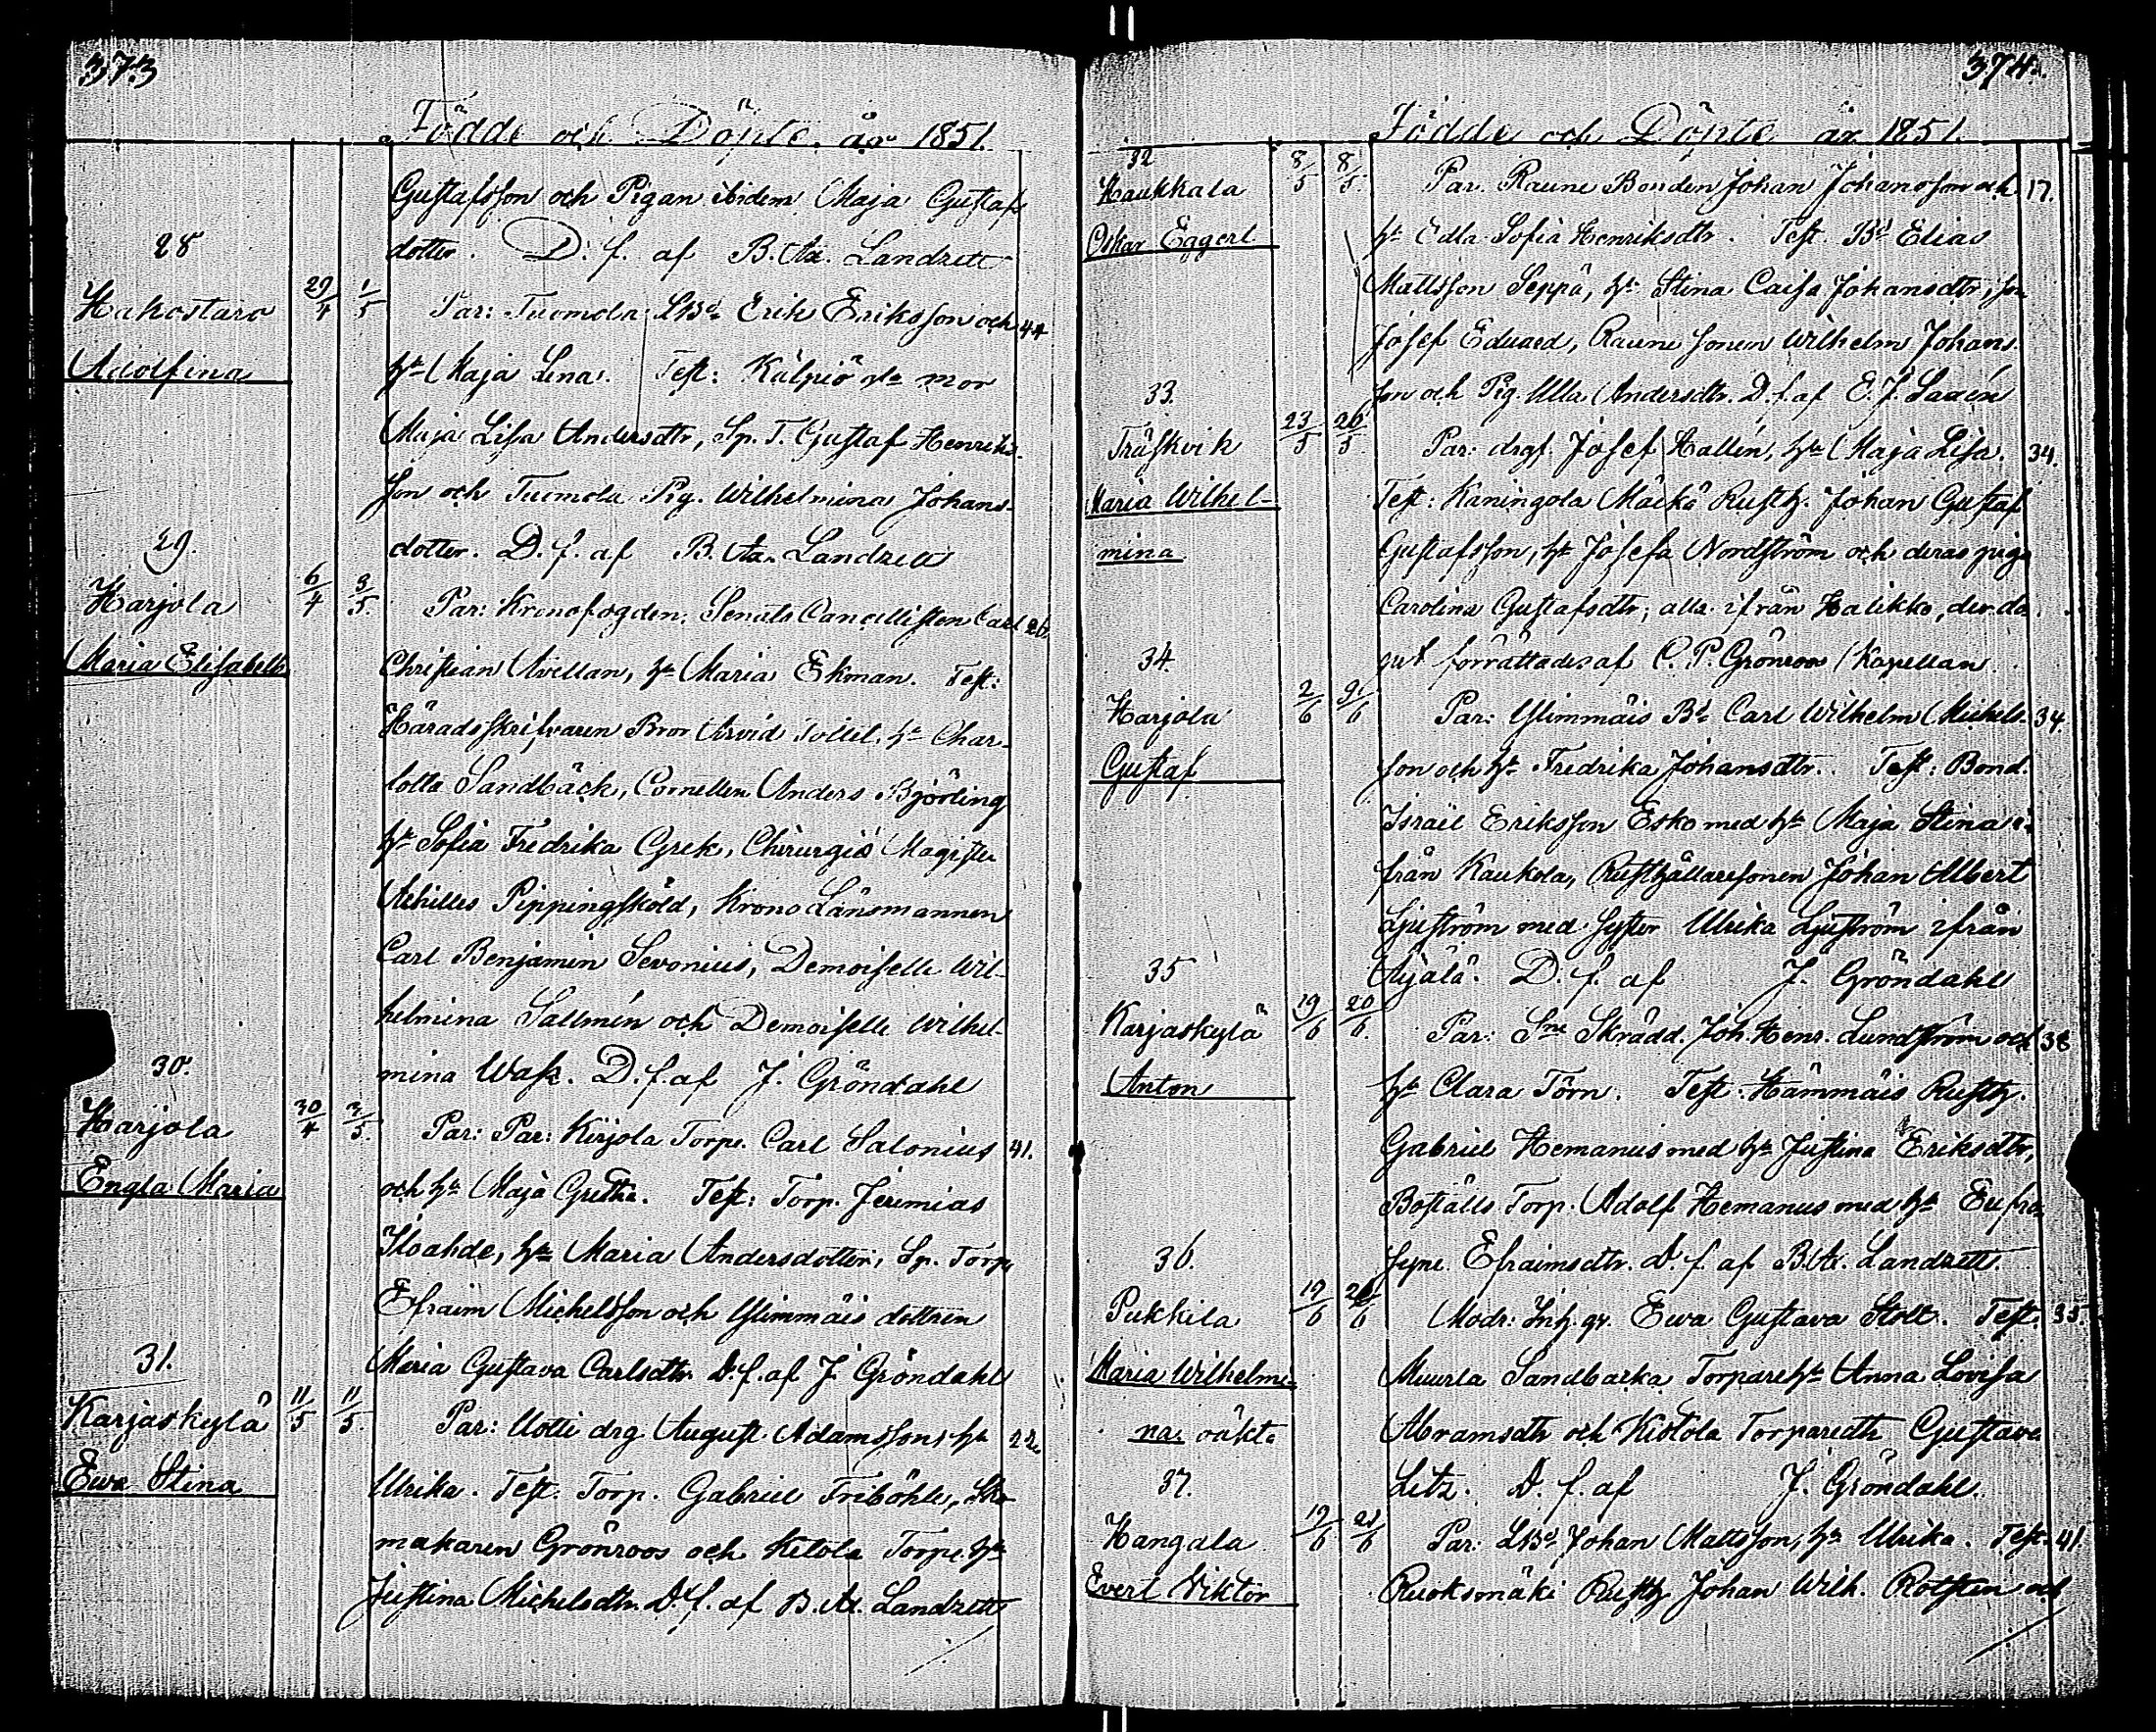 373
Födde och Döpte år 1851.
Gustafsson och Pigan ibidem Maja Gustafs
dotter. D. f. af B. Ax. Landzett
28
Hakostaro 29/4 1/5 Par: Tuomola LBd Erik Eriksson och 44
Adolfina
hu Maja Lina. Test: Kälpiö mor
Maja Lisa Andersdtr, Sp. T. Gustaf Henriks-
son och Tuomola Pig. Wilhelmina Johans-
dotter. D. f. af B. Ax. Landzett
29.
Harjola 6/4 3/5. Par: Kronofogden, Senats Cancellisten Carl 26
Maria Elisabeth
Christian Avellan, hu Maria Ekman. Test:
Häradsskrifvaren Bror Arvid Tollet, hu Char-
lotta Sandbäck, Cornetten Anders Björling
hu Sofia Fredrika Grek, Chirurgiæ Magister
Achilles Pippingsköld, Krono Länsmannen
Carl Benjamin Sevonius, Demoiselle Wil-
helmina Sallmén och Demoiselle Wilhel-
mina Wass. D. f. af J. Gröndahl
30.
Harjola 30/4 3/5. Par: Par: Kirjola Torpr. Carl Salonius 41.
Engla Maria
och hu Maja Gretha. Test: Torp. Jeremias
Iloahde, hu Maria Andersdotter, Sp. Torp.
Efraim Michelsson och Ylimmäis dottren
Maria Gustava Carlsdtr. D. f. af J. Gröndahl
31.
Karjaskylä 11/5 11/5. Par: Uotti drg August Adamsson, hu 22.
Ewa Stina
Ulrika. Test. Torp. Gabriel Friböhle, Sko-
makaren Grönroos och Ketola Torpr. hu
Justina Michelsdtr. D. f. af B. Ax. Landzett
374.
Födde och Döpte år 1851.
32
Haukkala 8/5 8/5. Par. Raune Bonden Johan Johansson och 17.
Oskar Eggert
hu Edla Sofia Henriksdtr. Test. Bd Elias
Mattsson Seppä, hu Stina Caisa Johansdtr, son
Josef Eduard, Raune sonen Wilhelm Johans-
son och Pig. Ulla Andersdtr. D. f. af E. J. Saxén
33.
Träskvik 23/5 26/5. Par: drg. Josef Hallén, hu Maja Lisa. 34.
Maria Wilhel-
mina
Test: Kaningola Mäckä Rusth. Johan Gustaf
Gustafsson, hu Josefa Nordström och deras piga
Carolina Gustafsdtr, alla ifrån Halikko, der do-
pet förrättades af C. P. Grönroos Kapellan.
34.
Harjola 2/6 9/6 Par: Ylimmäis Bd Carl Wilhelm Michels- 34.
Gustaf
son och hu Fredrika Johansdtr. Test: Bond.
Israel Eriksson Esko med hu Maja Stina i-
från Kaukola, Rusthållaresonen Johan Albert
Ljuström med syster Ulrika Ljuström ifrån
Äijälä. D. f. af J. Gröndahl
35
Karjaskylä 19/6 20/6. Par: Sne Skrädd. Joh. Henr. Lundström och 38
Anton
hu Clara Törn. Test. Hämmäis Rusth.
Gabriel Hemanus med hu Justina Eriksdtr,
Boställs Torp. Adolf Hemanus med hu Eufro-
syne Efraimsdtr. D. f. af B. Ax. Landzett.
36.
Pukkila 19/6 Modr: Inh. qv. Ewa Gustava Stolt. Test. 35.
Maria Wilhelmi-
na oäkta
Muurla Sandbacka Torpare hu Anna Lovisa
Abramsdtr och Kistola Torparedtr Gustava
Litz. D. f. af J. Gröndahl.
37.
Hangala 19/6 21/6 Par: LBd Johan Mattsson, hu Ulrika. Test. 41.
Evert Viktor
Ruoksmäki Rusth Johan Wilh. Rotsten och